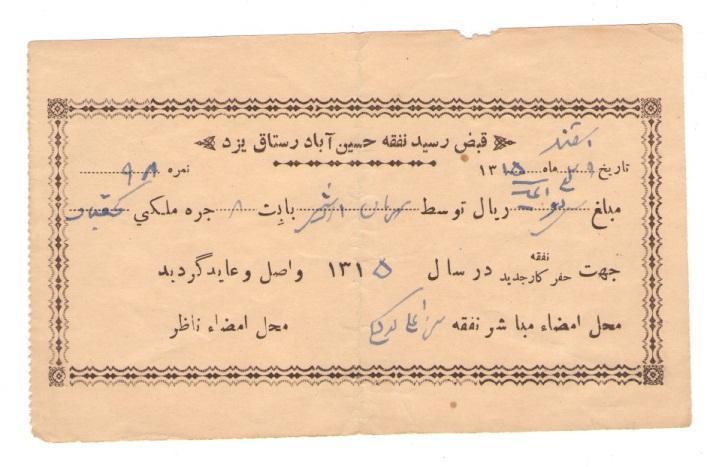 قبض رسید نفقه حسین آباد رستاق یزد
تاریخ ماه اسفند ۱۳۱۵ نمره ۹۸
مبلغ ریال توسط بابت ۸ جره ملکي
جهت نفقه حفر کار جدید در سال ۱۳۱۵ واصل و عاید گردید
محل امضاء مباشر نفقه محل امضاء ناظر